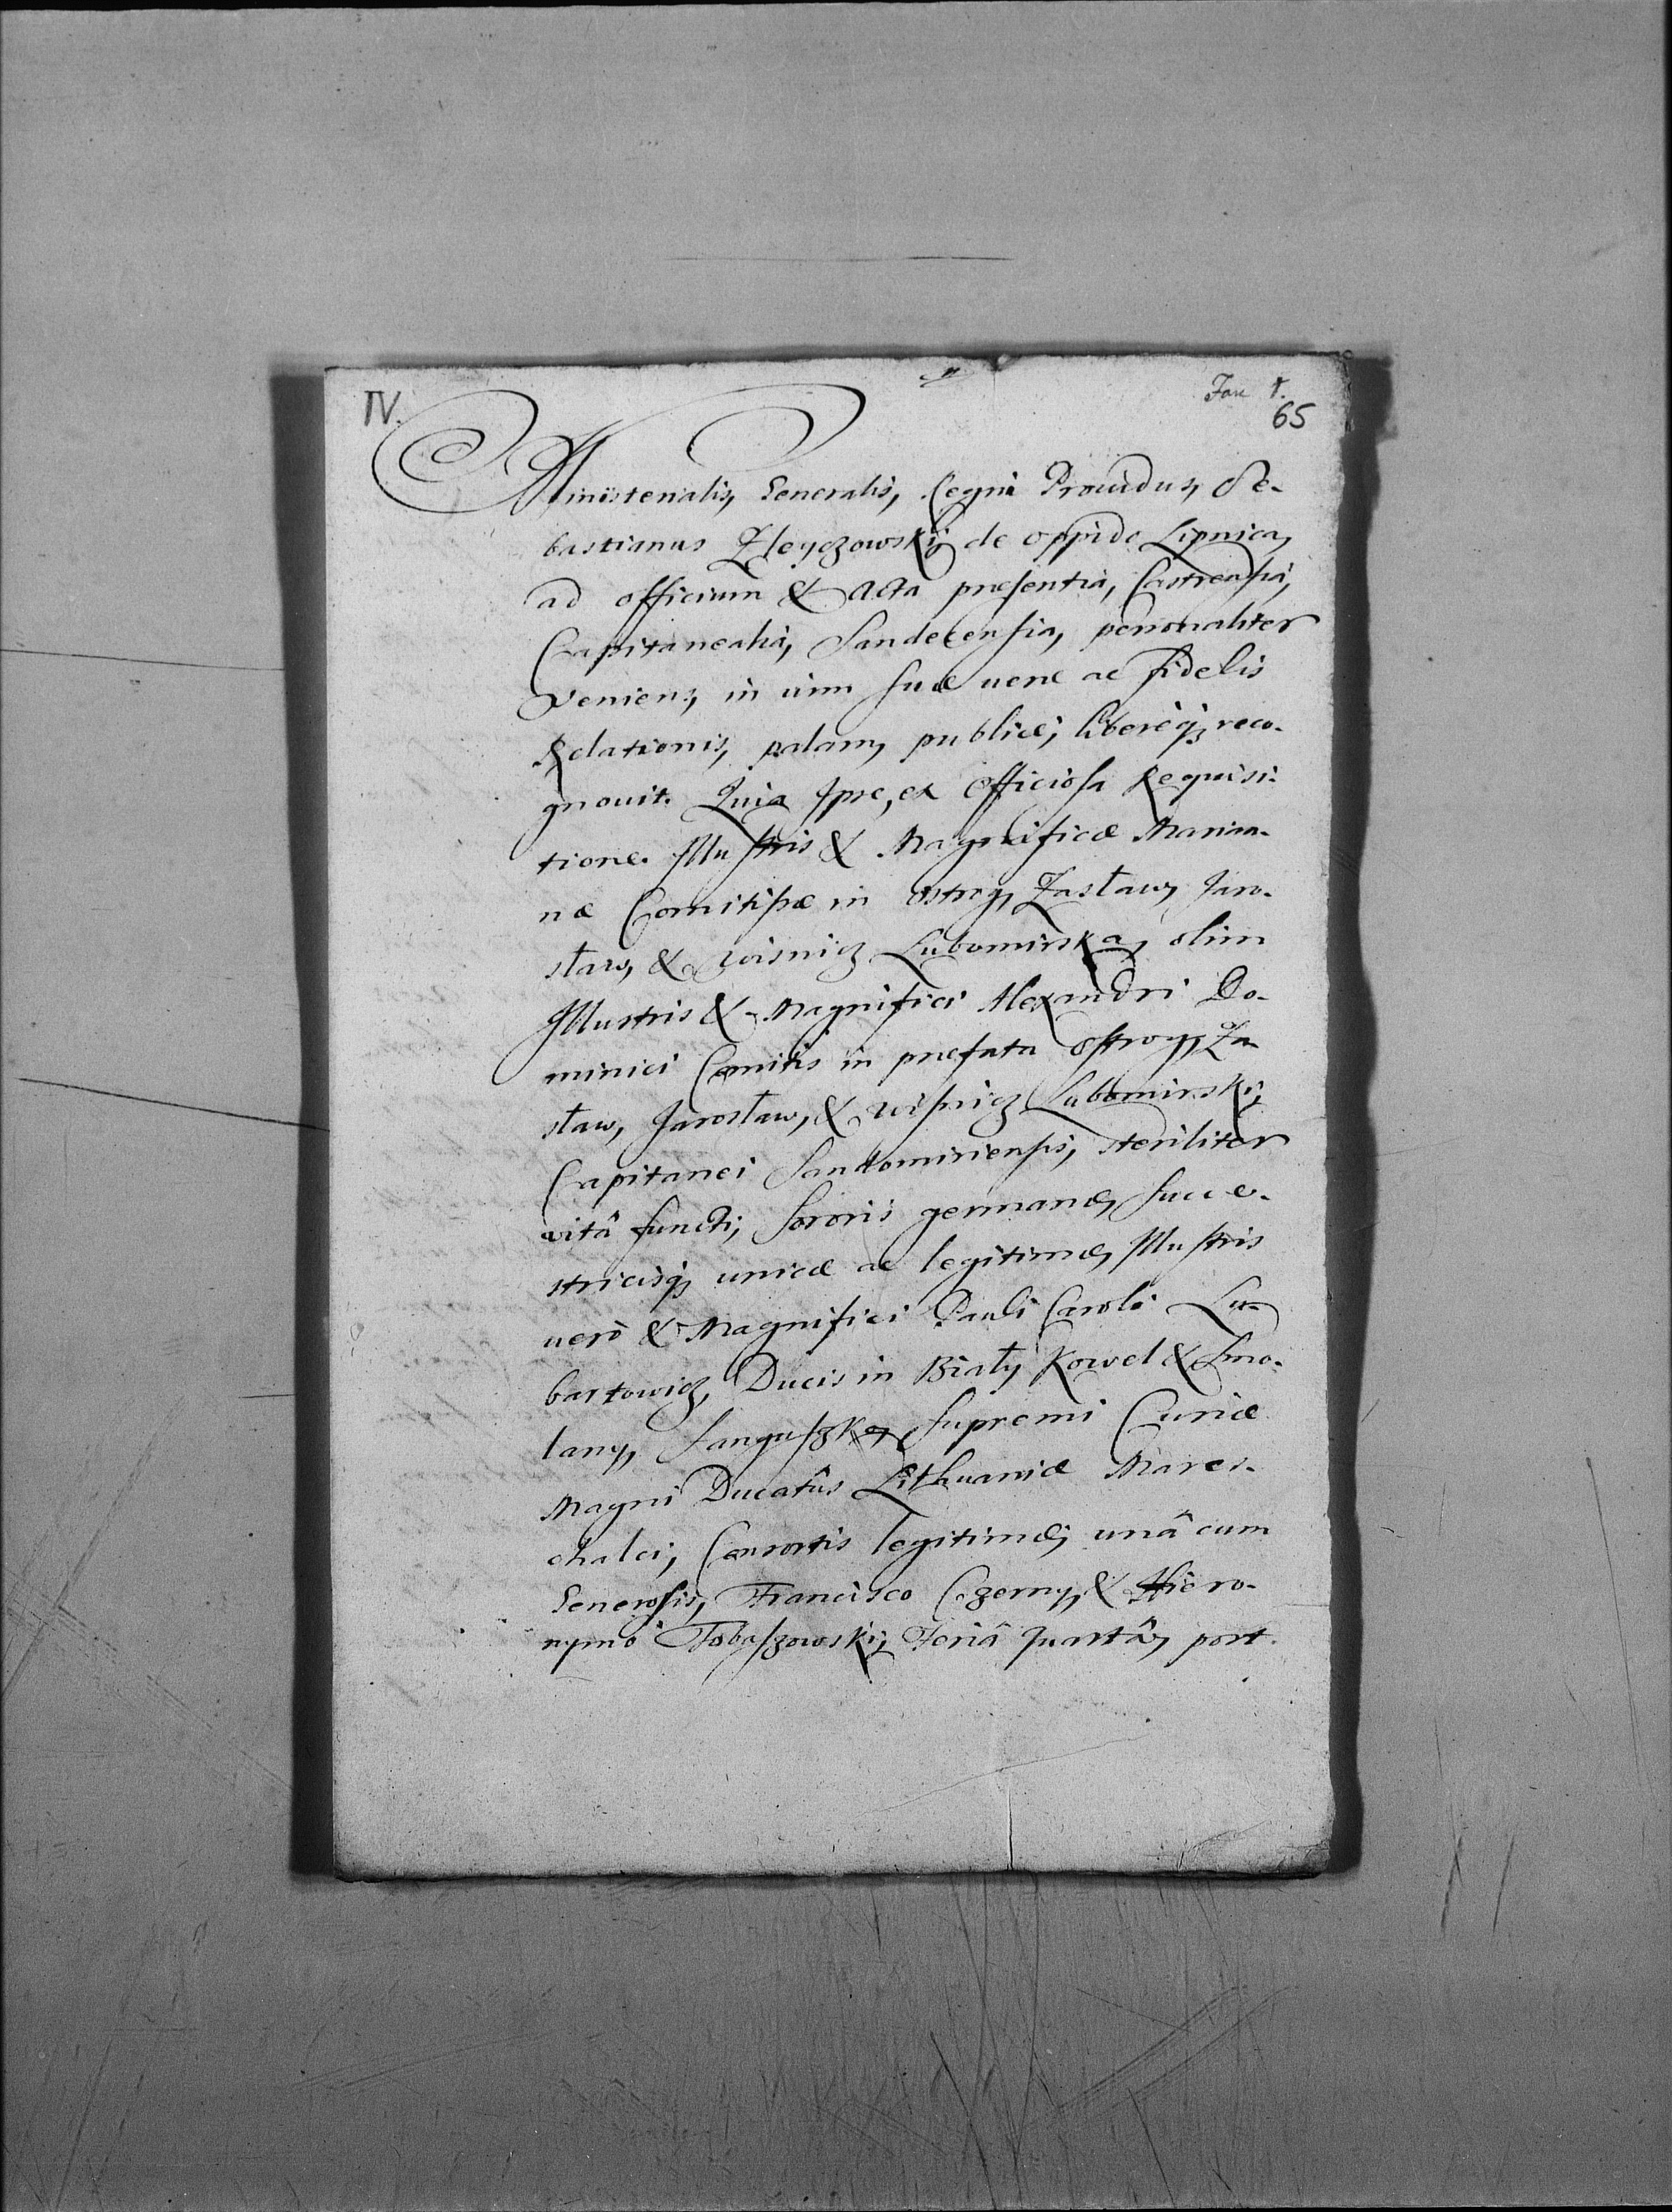 IV.
65
Ministerialis, Generalis, Regni Prouidus, Se-
bastianus Zleyczowskij de oppido Lipnica,
ad officium & Acta præsentia, Castrensia,
Capitanealia, Sandecensia, personaliter
veniens, in uim suæ ueræ ac fidelis
Relationis, palam, publicè, liberèq; reco-
gnouit. Quia Ipse, ex officiosa Requisi-
tione Illustris & Magnificæ Marian-
næ Comitissæ in Ostrog, Zasław, Jaro-
sław, & Wisnicz Lubomirska, olim
Illustris & Magnifici Alexandri Do-
minici Comitis in præfata Ostrog, Za-
sław, Jarosław, & Wisnicz Lubomirski,
Capitanei Sandomiriensis, steriliter
vitâ functi, Sororis germanæ, Succe-
stricisq; unicæ ac legitimæ, Illustris
uerò & Magnifici Pauli Caroli Lu-
bartowicz, Ducis in Biały Kowel & Smo-
lany, Sanguszko, Supremi Curiæ
Magni Ducatûs Lithuaniæ Mares-
chalci, Consortis legitimæ, unâ cum
Generosis, Francisco Czerny, & Hiero-
nymo Tobaszowski, Feriâ Quartâ, post